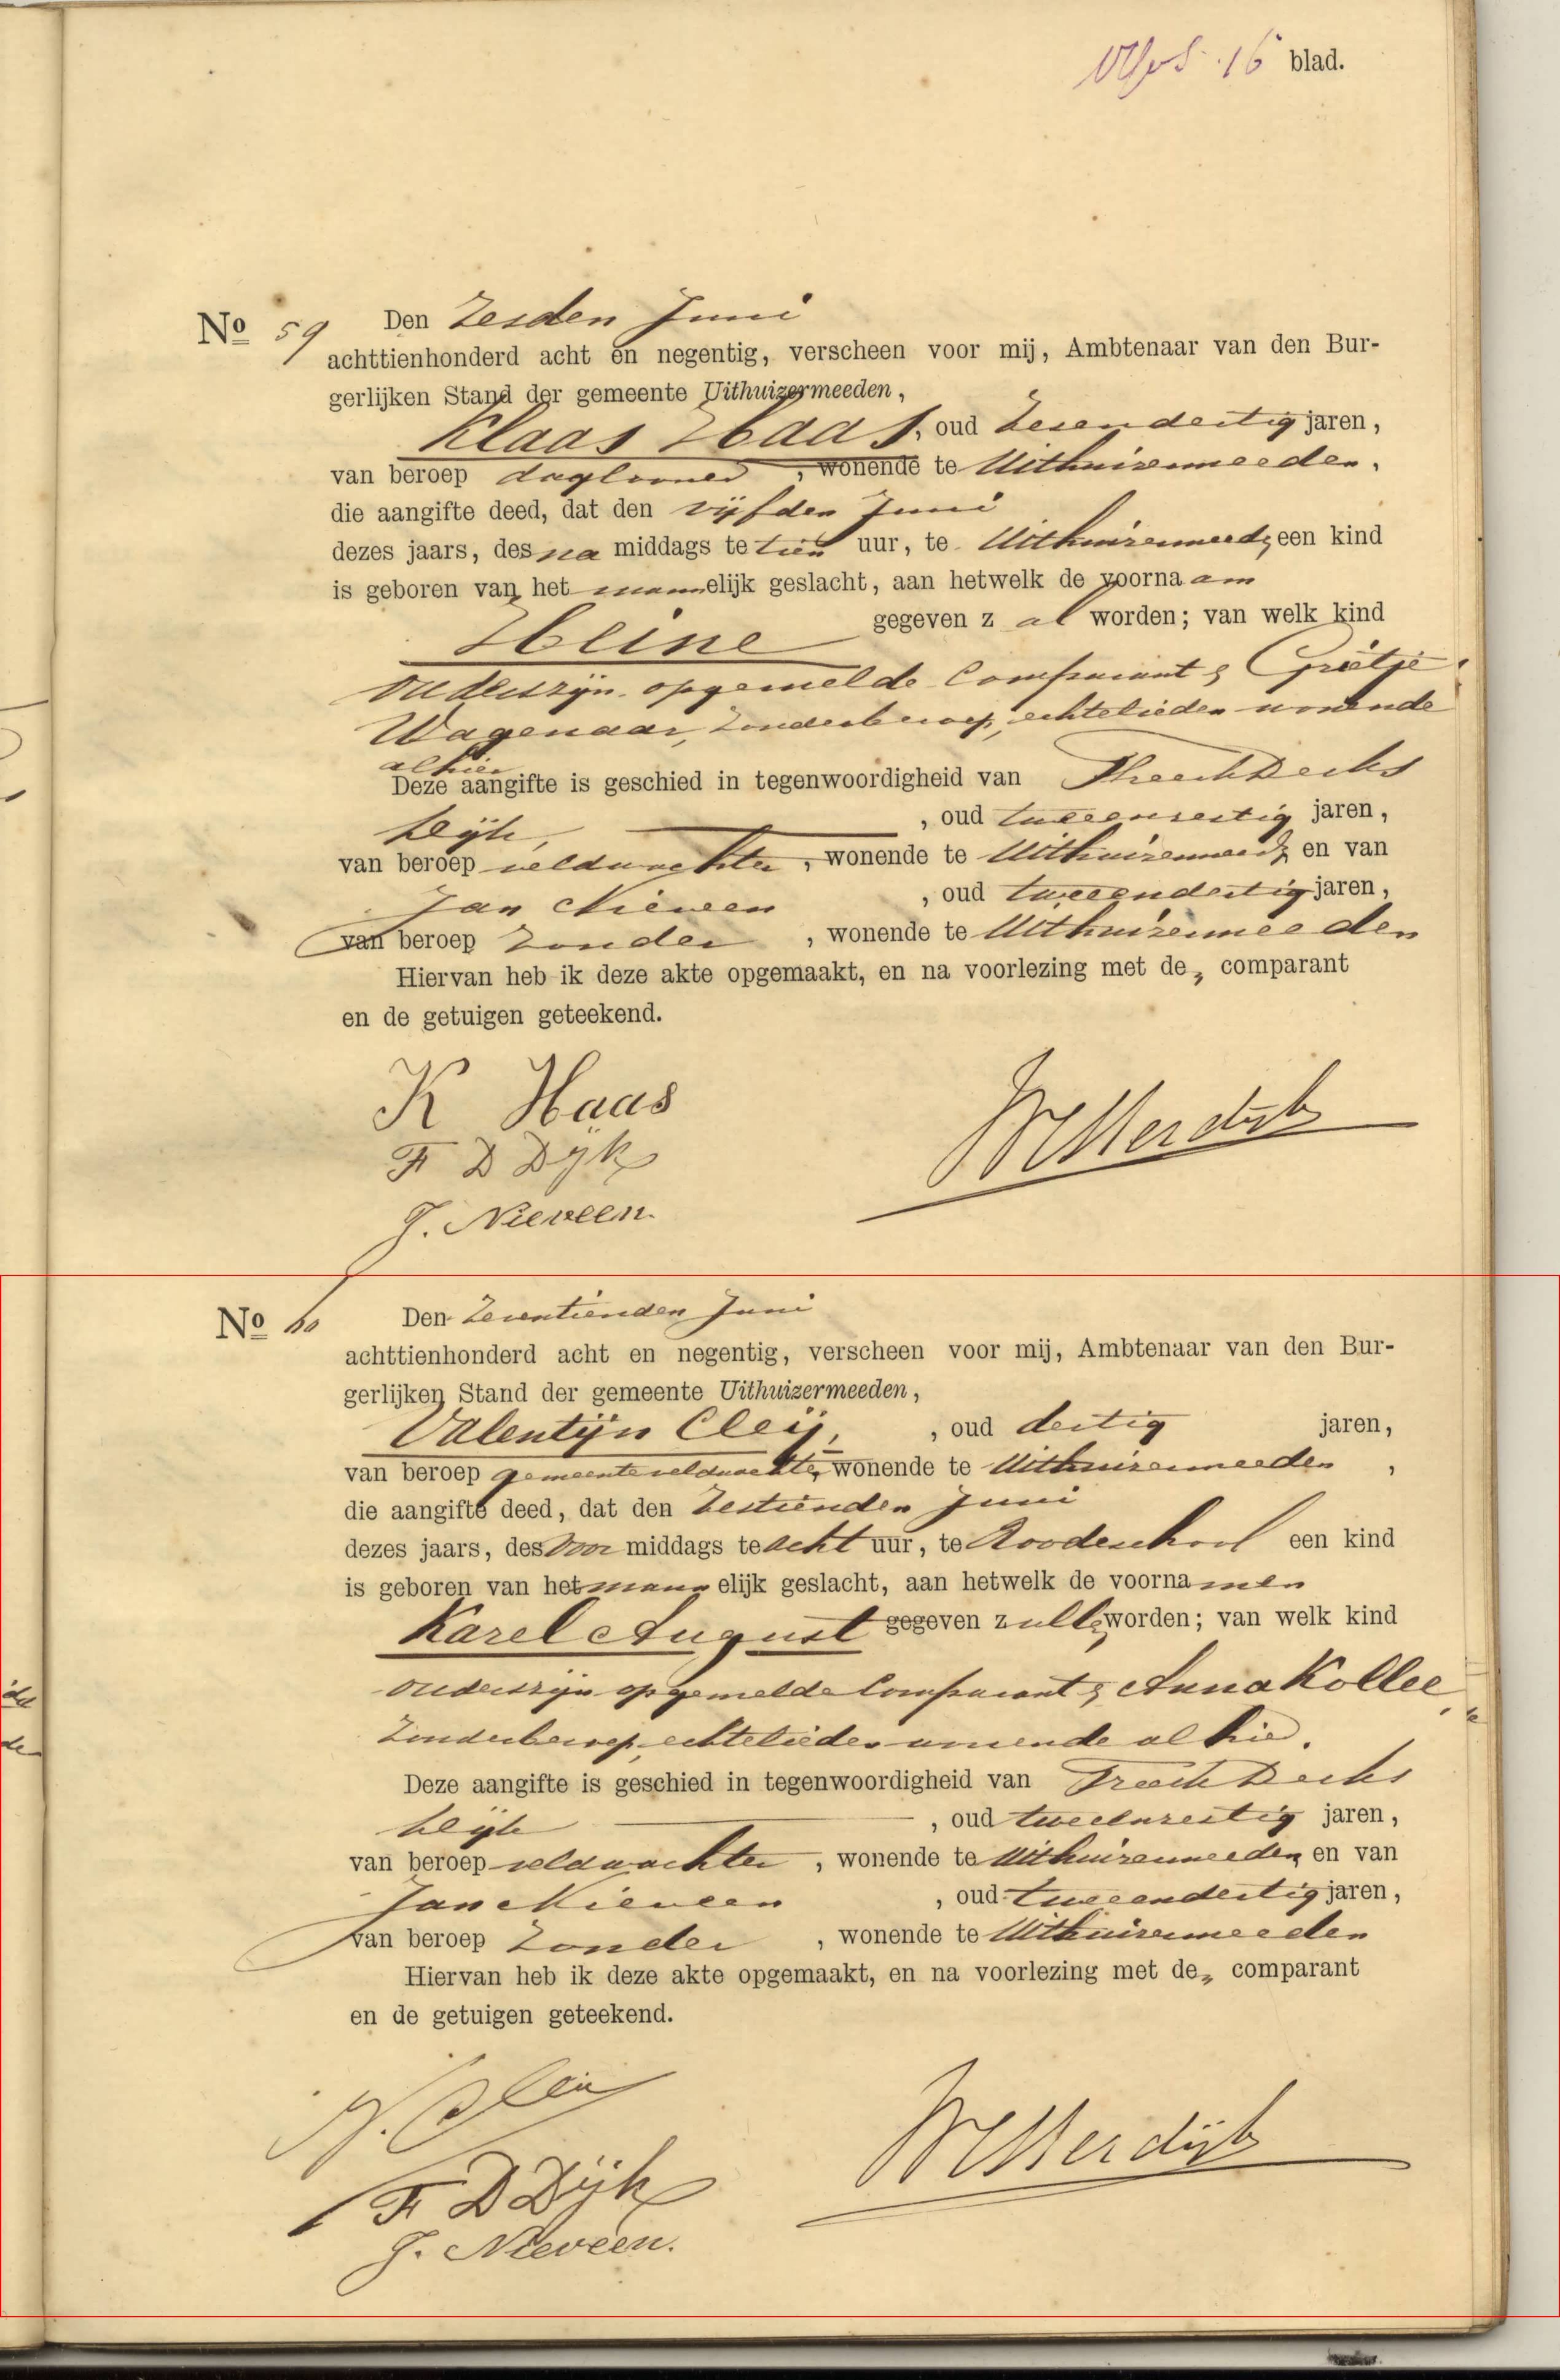 16 blad.
No 59 Den Zesden Juni
achttienhonderd acht en negentig, verscheen voor mij, Ambtenaar van den Bur-
gerlijken Stand der gemeente Uithuizermeeden,
Klaas Haas, oud Zesendertig jaren,
van beroep daglooner, wonende te Uithuizermeeden,
die aangifte deed, dat den vijfden Juni
dezes jaars, des na middags te tien uur, te Uithuizermeed een kind
is geboren van het mannelijk geslacht, aan hetwelk de voornaam
Heine gegeven zal worden; van welk kind
ouders zijn opgemelde Comparant & Grietje
Wagenaar, Zonder beroep, echtelieden wonende
alhier
Deze aangifte is geschied in tegenwoordigheid van Freerk Derks
Dijk, oud tweeenzestig jaren,
van beroep veldwachter, wonende te Uithuizermeed en van
Jan Nieveen, oud tweeendertig jaren,
van beroep Zonder, wonende te Uithuizermeeden
Hiervan heb ik deze akte opgemaakt, en na voorlezing met de „ comparant
en de getuigen geteekend.
K Haas
F D Dijk
J. Nieveen.
No 60 Den Zeventienden Juni
achttienhonderd acht en negentig, verscheen voor mij, Ambtenaar van den Bur-
gerlijken Stand der gemeente Uithuizermeeden,
Valentijn Cleij, oud dertig jaren,
van beroep gemeenteveldwachter, wonende te Uithuizermeeden,
die aangifte deed, dat den Zestienden Juni
dezes jaars, des voor middags te acht uur, te Roodeschool een kind
is geboren van het mannelijk geslacht, aan hetwelk de voornamen
Karel August gegeven zullen worden; van welk kind
ouders zijn opgemelde Comparant & Anna Kollee,
Zonder beroep, echtelieden wonende alhier.
Deze aangifte is geschied in tegenwoordigheid van Freerk Derks
Dijk, oud tweeenzestig jaren,
van beroep veldwachter, wonende te Uithuizermeeden en van
Jan Nieveen, oud tweeendertig jaren,
van beroep Zonder, wonende te Uithuizermeeden
Hiervan heb ik deze akte opgemaakt, en na voorlezing met de „ comparant
en de getuigen geteekend.
V. Cleij
F D Dijk
J. Nieveen.